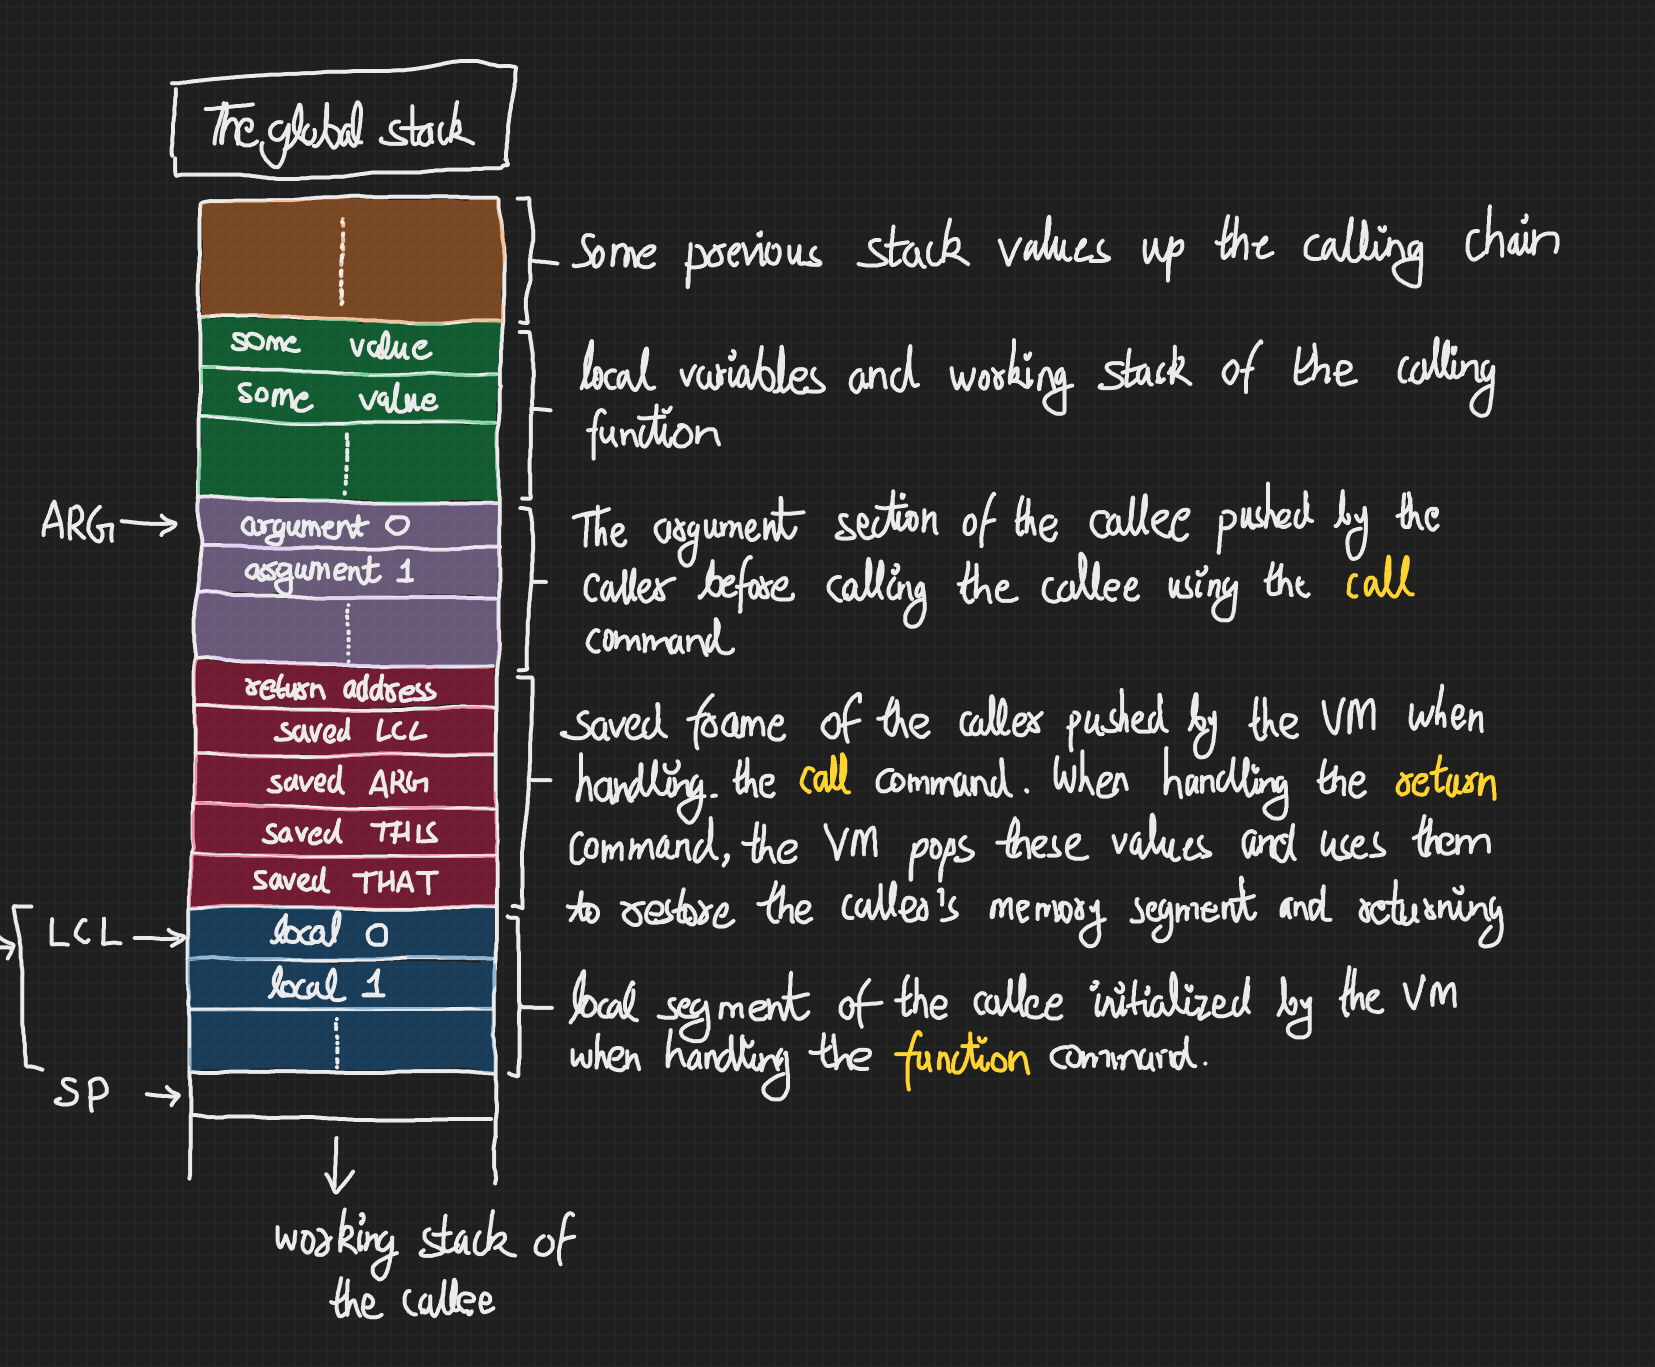 The global stack
some previous stack values up the calling chain
some value
some value
local variables and working stack of the calling
function
ARG
argument 0
argument 1
The argument section of the callee pushed by the
caller before calling the callee using the call
command
return address
saved LCL
saved ARG
saved THIS
saved THAT
saved frame of the caller pushed by the VM when
handling the call command. When handling the return
command, the VM pops these values and uses them
to restore the caller's memory segment and returning
LCL
local 0
local 1
local segment of the callee initialized by the VM
when handling the function command.
SP
working stack of
the callee